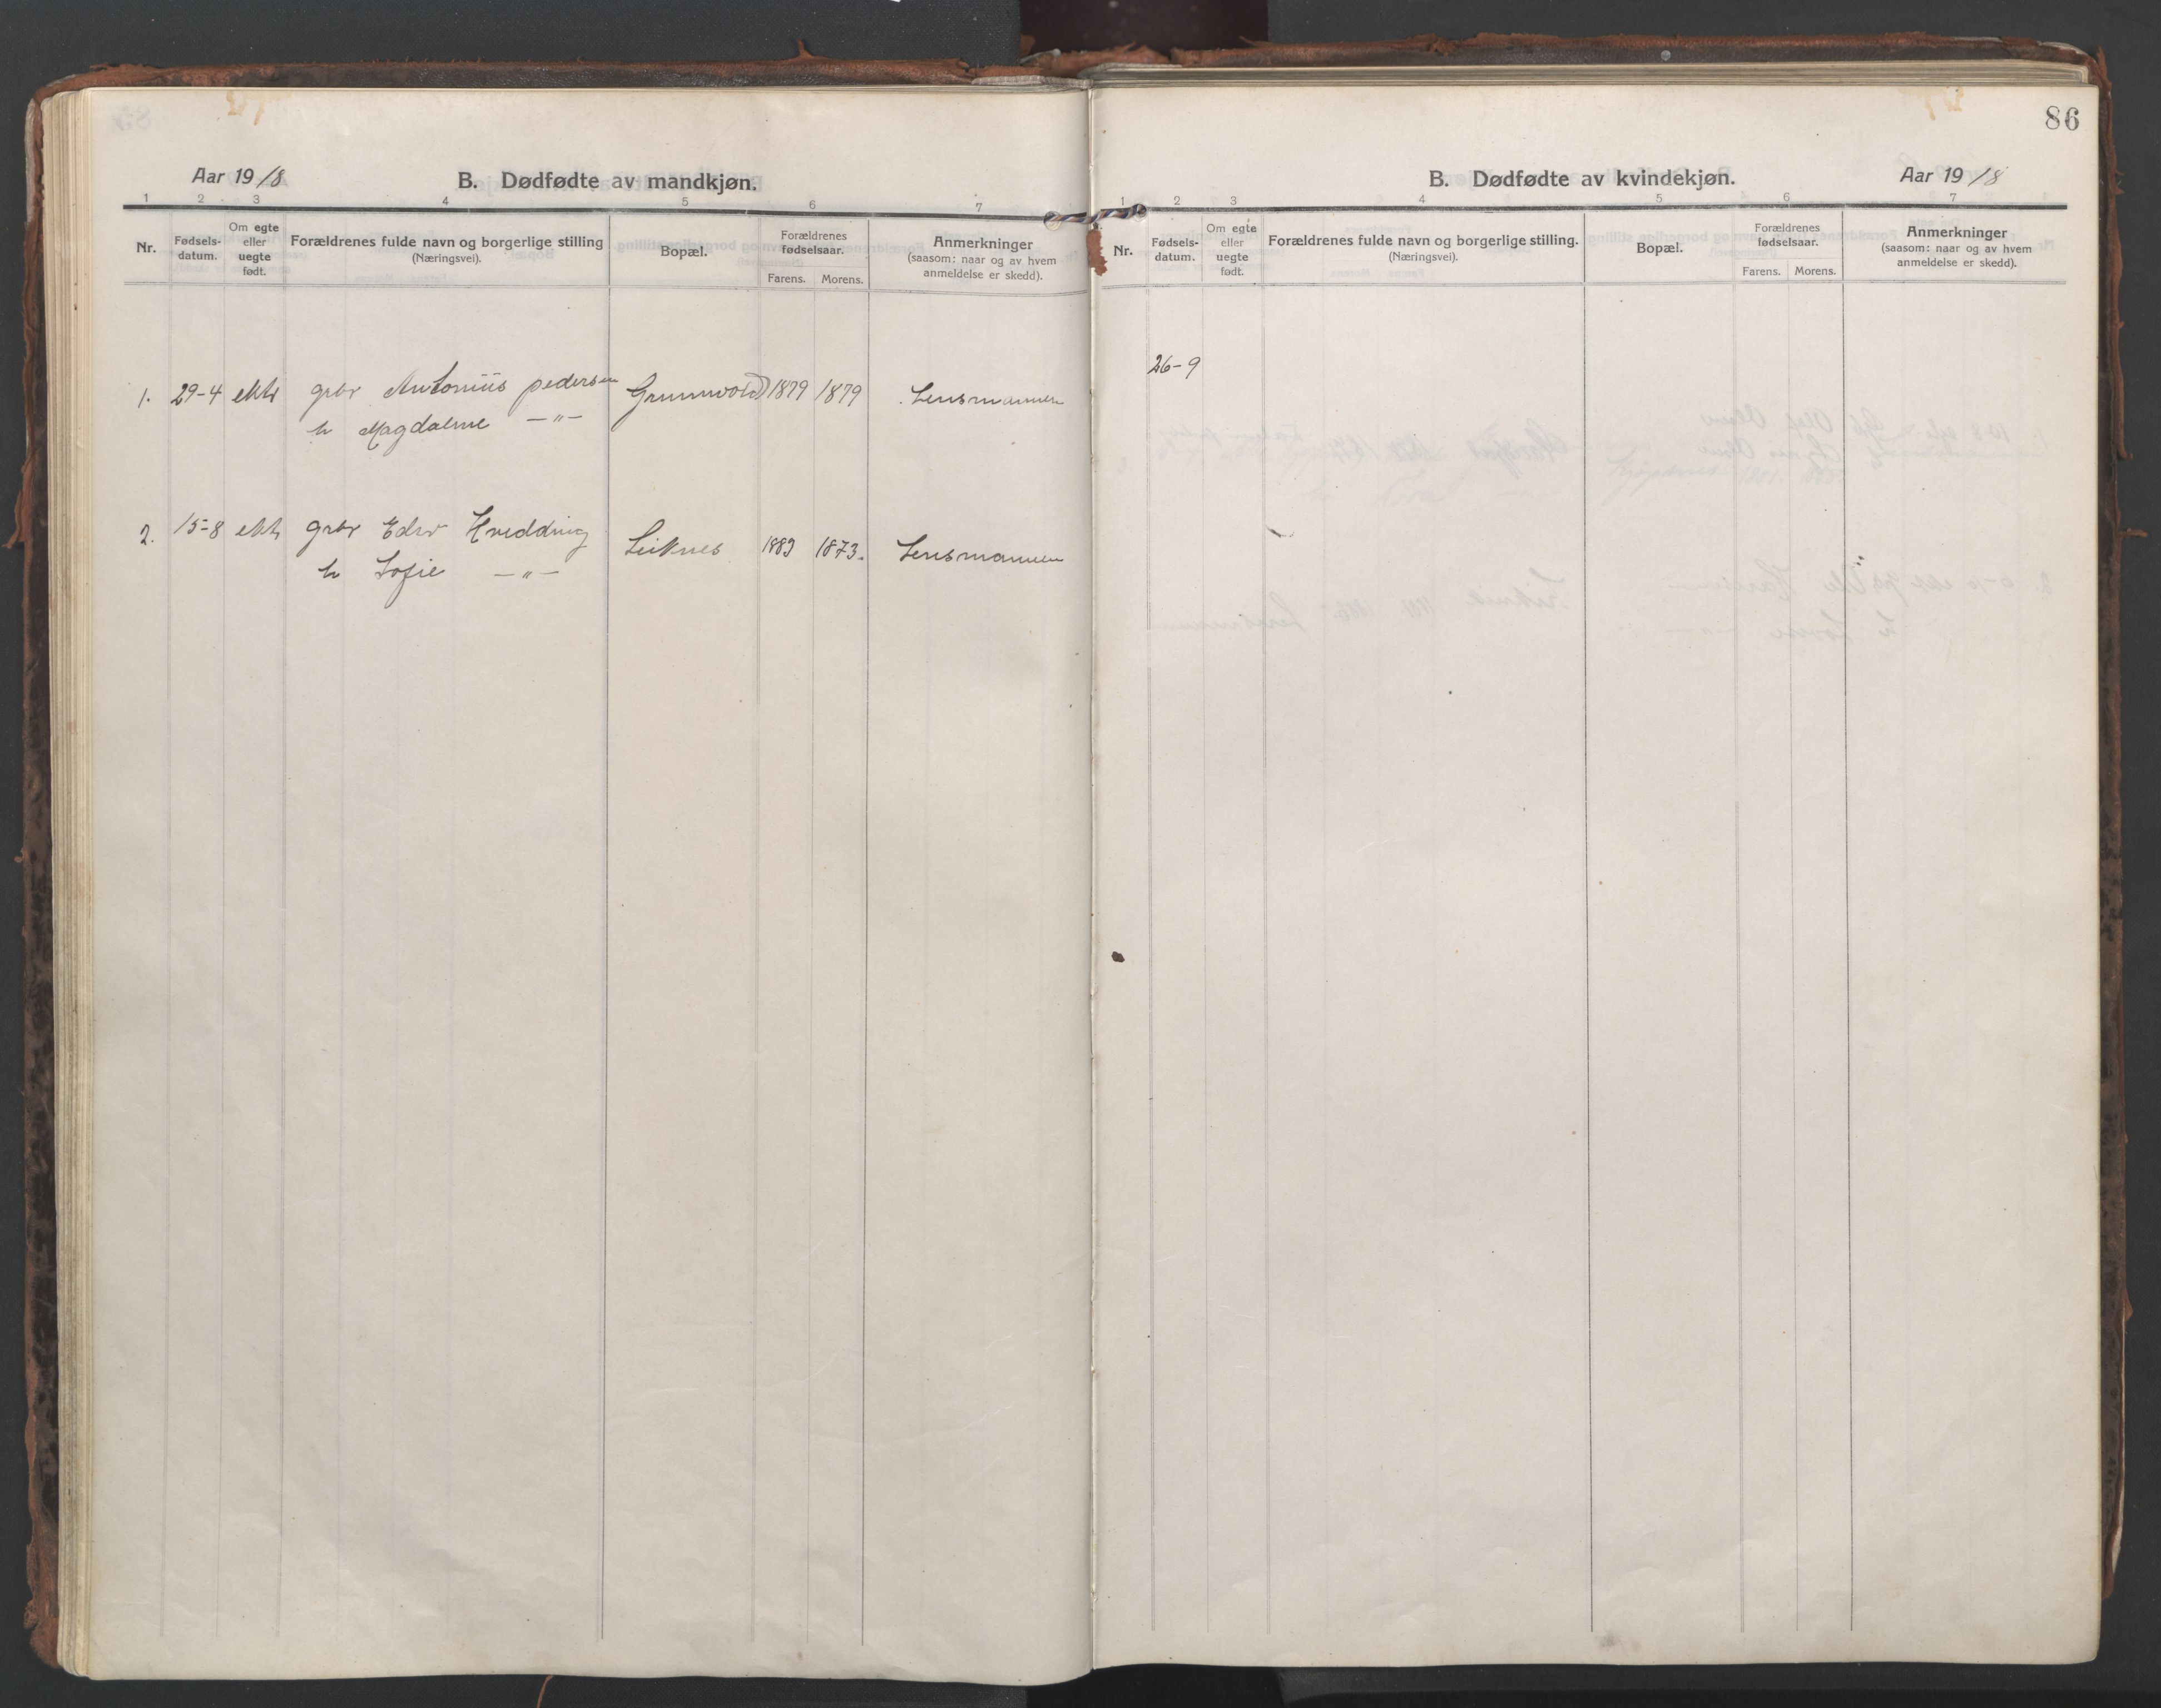 Aar 1918
B. Dødfødte av mandkjøn.
1 2 3 4 5 6 7
Nr.
Fødsels-
datum.
Om egte
eller
uegte
født.
Forældrenes fulde navn og borgerlige stilling
(Næringsvei).
Bopæl.
Forældrenes
fødselsaar.
Farens. Morens.
Anmerkninger
(saasom: naar og av hvem
anmeldelse er skedd).
1. 29-4 ekte gbr Antonius pedersen 1879 1879 Lensmannen
h Magdalene —"—
2. 15-8 ekte gbr Edv Hvedding Leiknes 1883 1873. Lensmannen
h Sofie —"—
86
B. Dødfødte av kvindekjøn.
Aar 1918
1 2 3 4 5 6 7
Nr.
Fødsels-
datum.
Om egte
eller
uegte
født.
Forældrenes fulde navn og borgerlige stilling.
(Næringsvei).
Bopæl.
Forældrenes
fødselsaar.
Farens. Morens.
Anmerkninger
(saasom: naar og av hvem
anmeldelse er skedd).
26-9